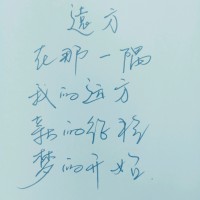 遠方
在那一隅
我的远方
新的征程
梦的开始